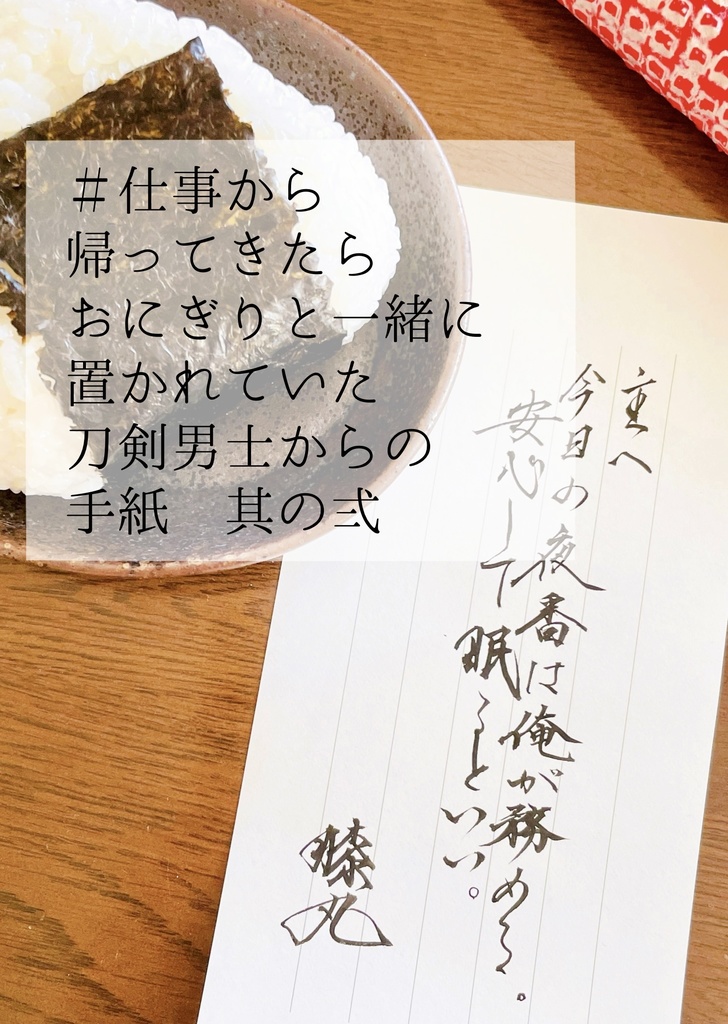 ＃仕事から
帰ってきたら
おにぎりと一緒に
置かれていた
刀剣男士からの
手紙　其の弐
主へ
今日の夜番は俺が務める。
安心して眠るといい。
膝丸